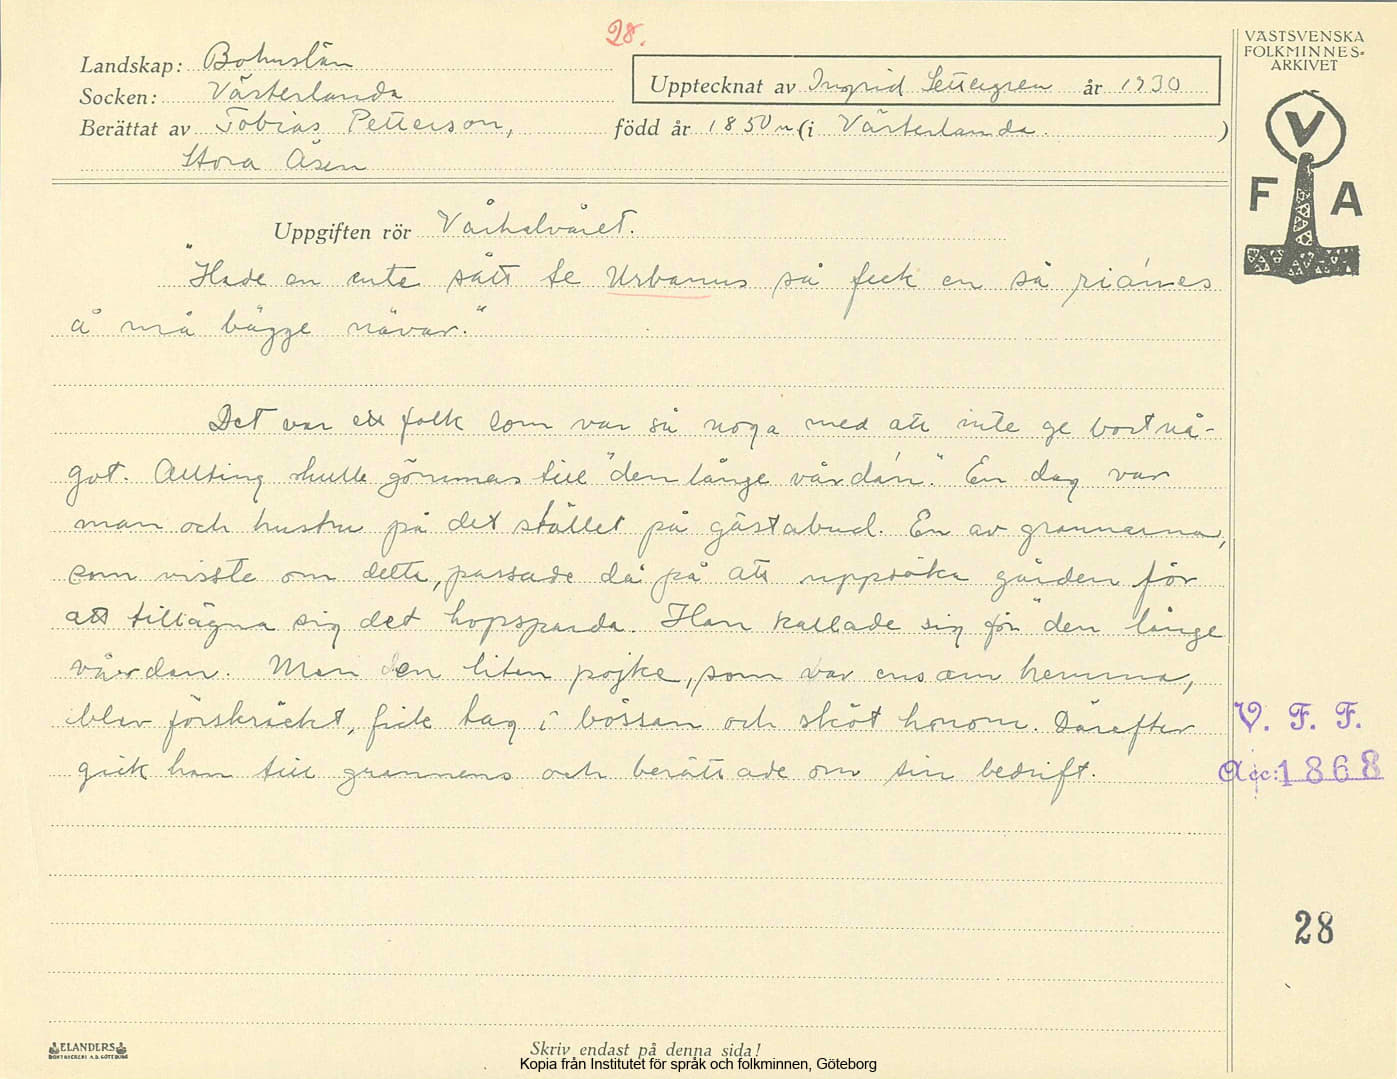 28.
VÄSTSVENSKA
FOLKMINNES=
ARKIVET
Landskap: Bohuslän
Upptecknat av Ingrid Settergren år 1930
Socken: Västerlanda
Berättat av Tobias Petterson, född år 1850 (i Västerlanda.)
Stora Åsen
V
F A
Uppgiften rör Vårhalvåret.
"Hade en ente sått te Urbanus så feck en så
å må bägge nävar."
Det var ett folk som var så noga med att inte ge bort nå-
got. Allting skulle gömmas till "den långe vårdán". En dag var
man och hustru på det stället på gästabud. En av grannarna,
som visste om detta, passade då på att uppsöka gården för
att tillägna sig det hopsparda. Han kallade sig för "den långe
vårdan. Men en liten pojke, som var ensam hemma,
blev förskräckt, fick tag i bössan och sköt honom. Därefter
gick han till grannens och berättade om sin bedrift.
V. F. F.
Acc: 1868
28
ELANDERS
BOKTRYCKERI A.B. GÖTEBORG
Skriv endast på denna sida!
Kopia från Institutet för språk och folkminnen, Göteborg